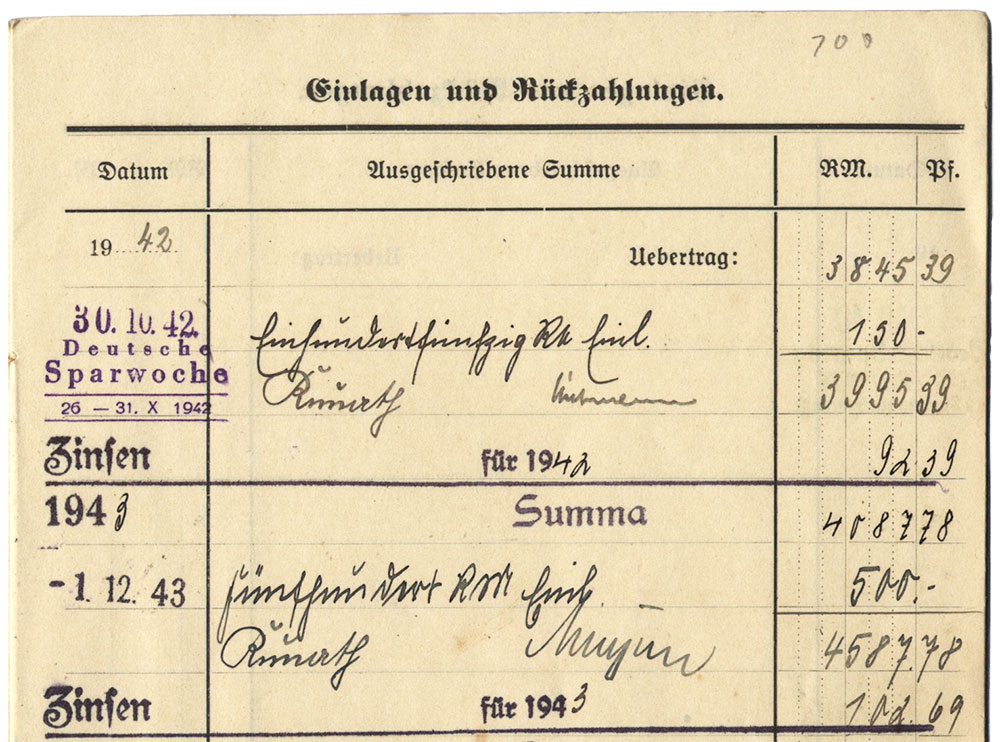 700
Einlagen und Rückzahlungen.
Datum Ausgeschriebene Summe RM. Pf.
19 42 Uebertrag: 3845 39
30. 10. 42. Einhundertfünfzig RM Einl. 150 -
Deutsche
Sparwoche 3995 39
26 — 31. X 1942
Zinsen für 1942 92 39
1943 Summa 4087 78
- 1. 12. 43 fünfhundert RM Einl. 500. -
4587. 78
Zinsen für 1943 102. 69